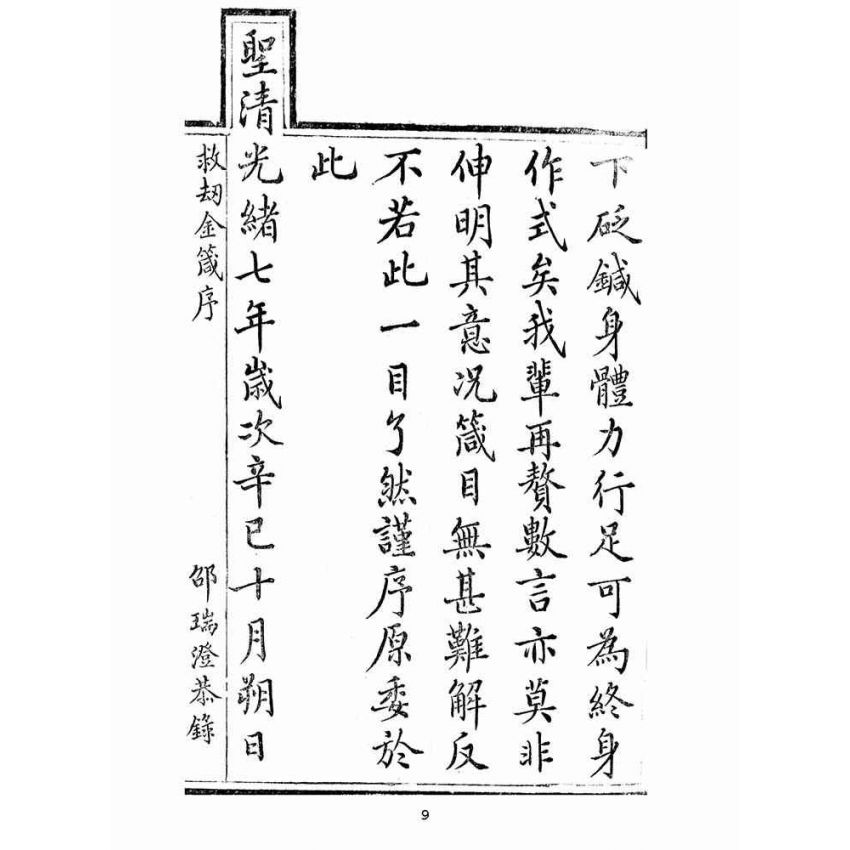 下砭鍼身體力行足可為終身
作式矣我輩再贅數言亦莫非
伸明其意況箴目無甚難解反
不若此一目了然謹序原委於
此
聖清光緒七年歲次辛巳十月朔日
救劫金箴序
邵瑞澄恭錄
9